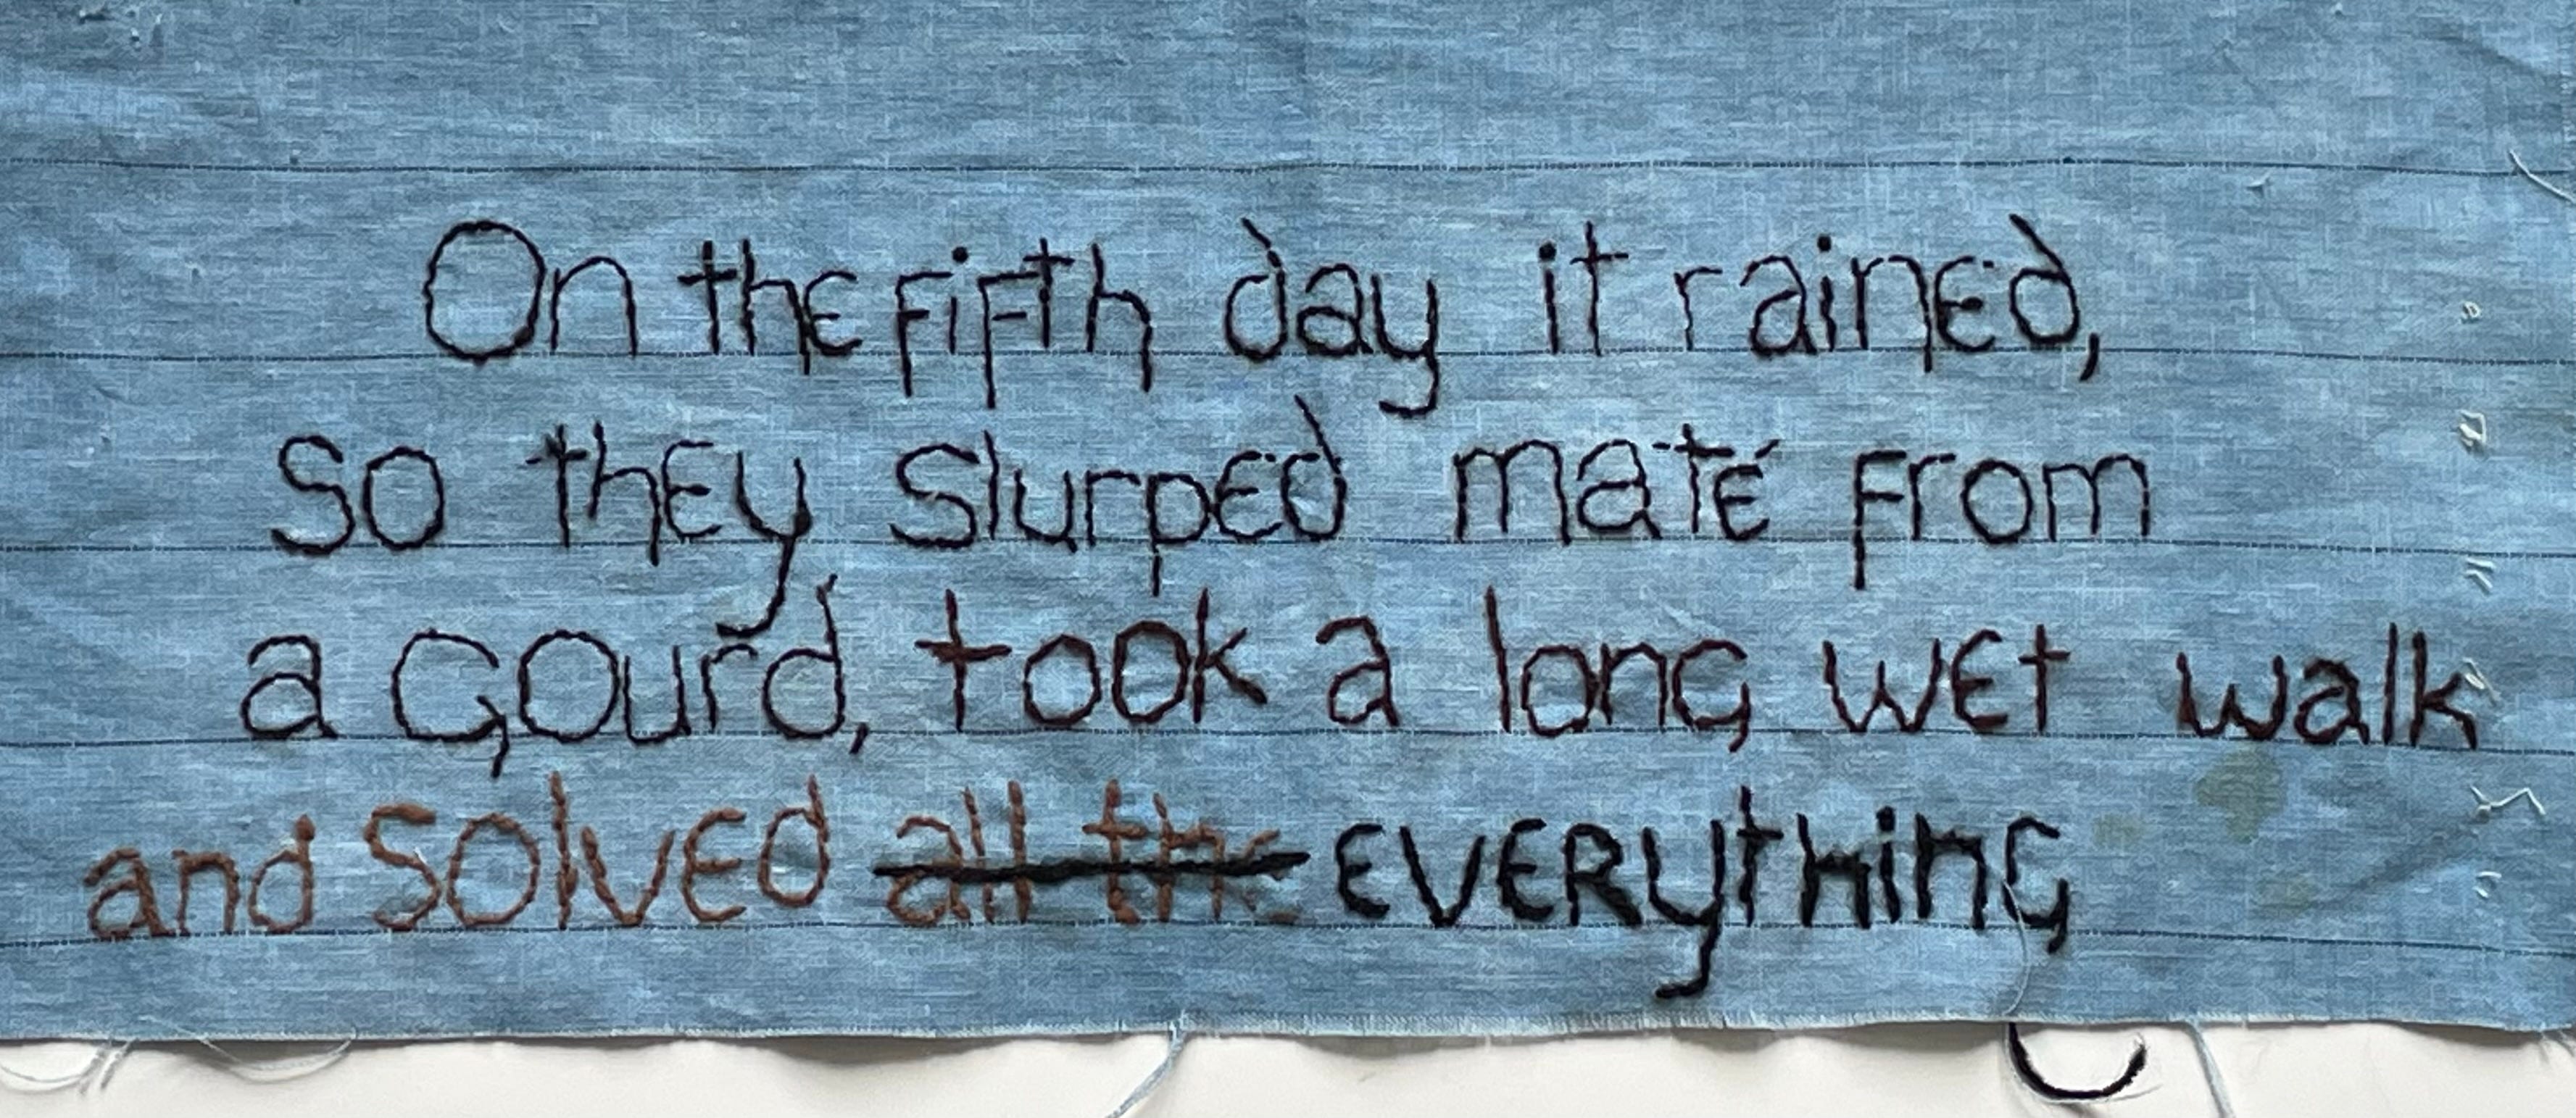 On the fifth day it rained,
so they slurped maté from
a gourd, took a long wet walk
and solved ~~all the~~ everything